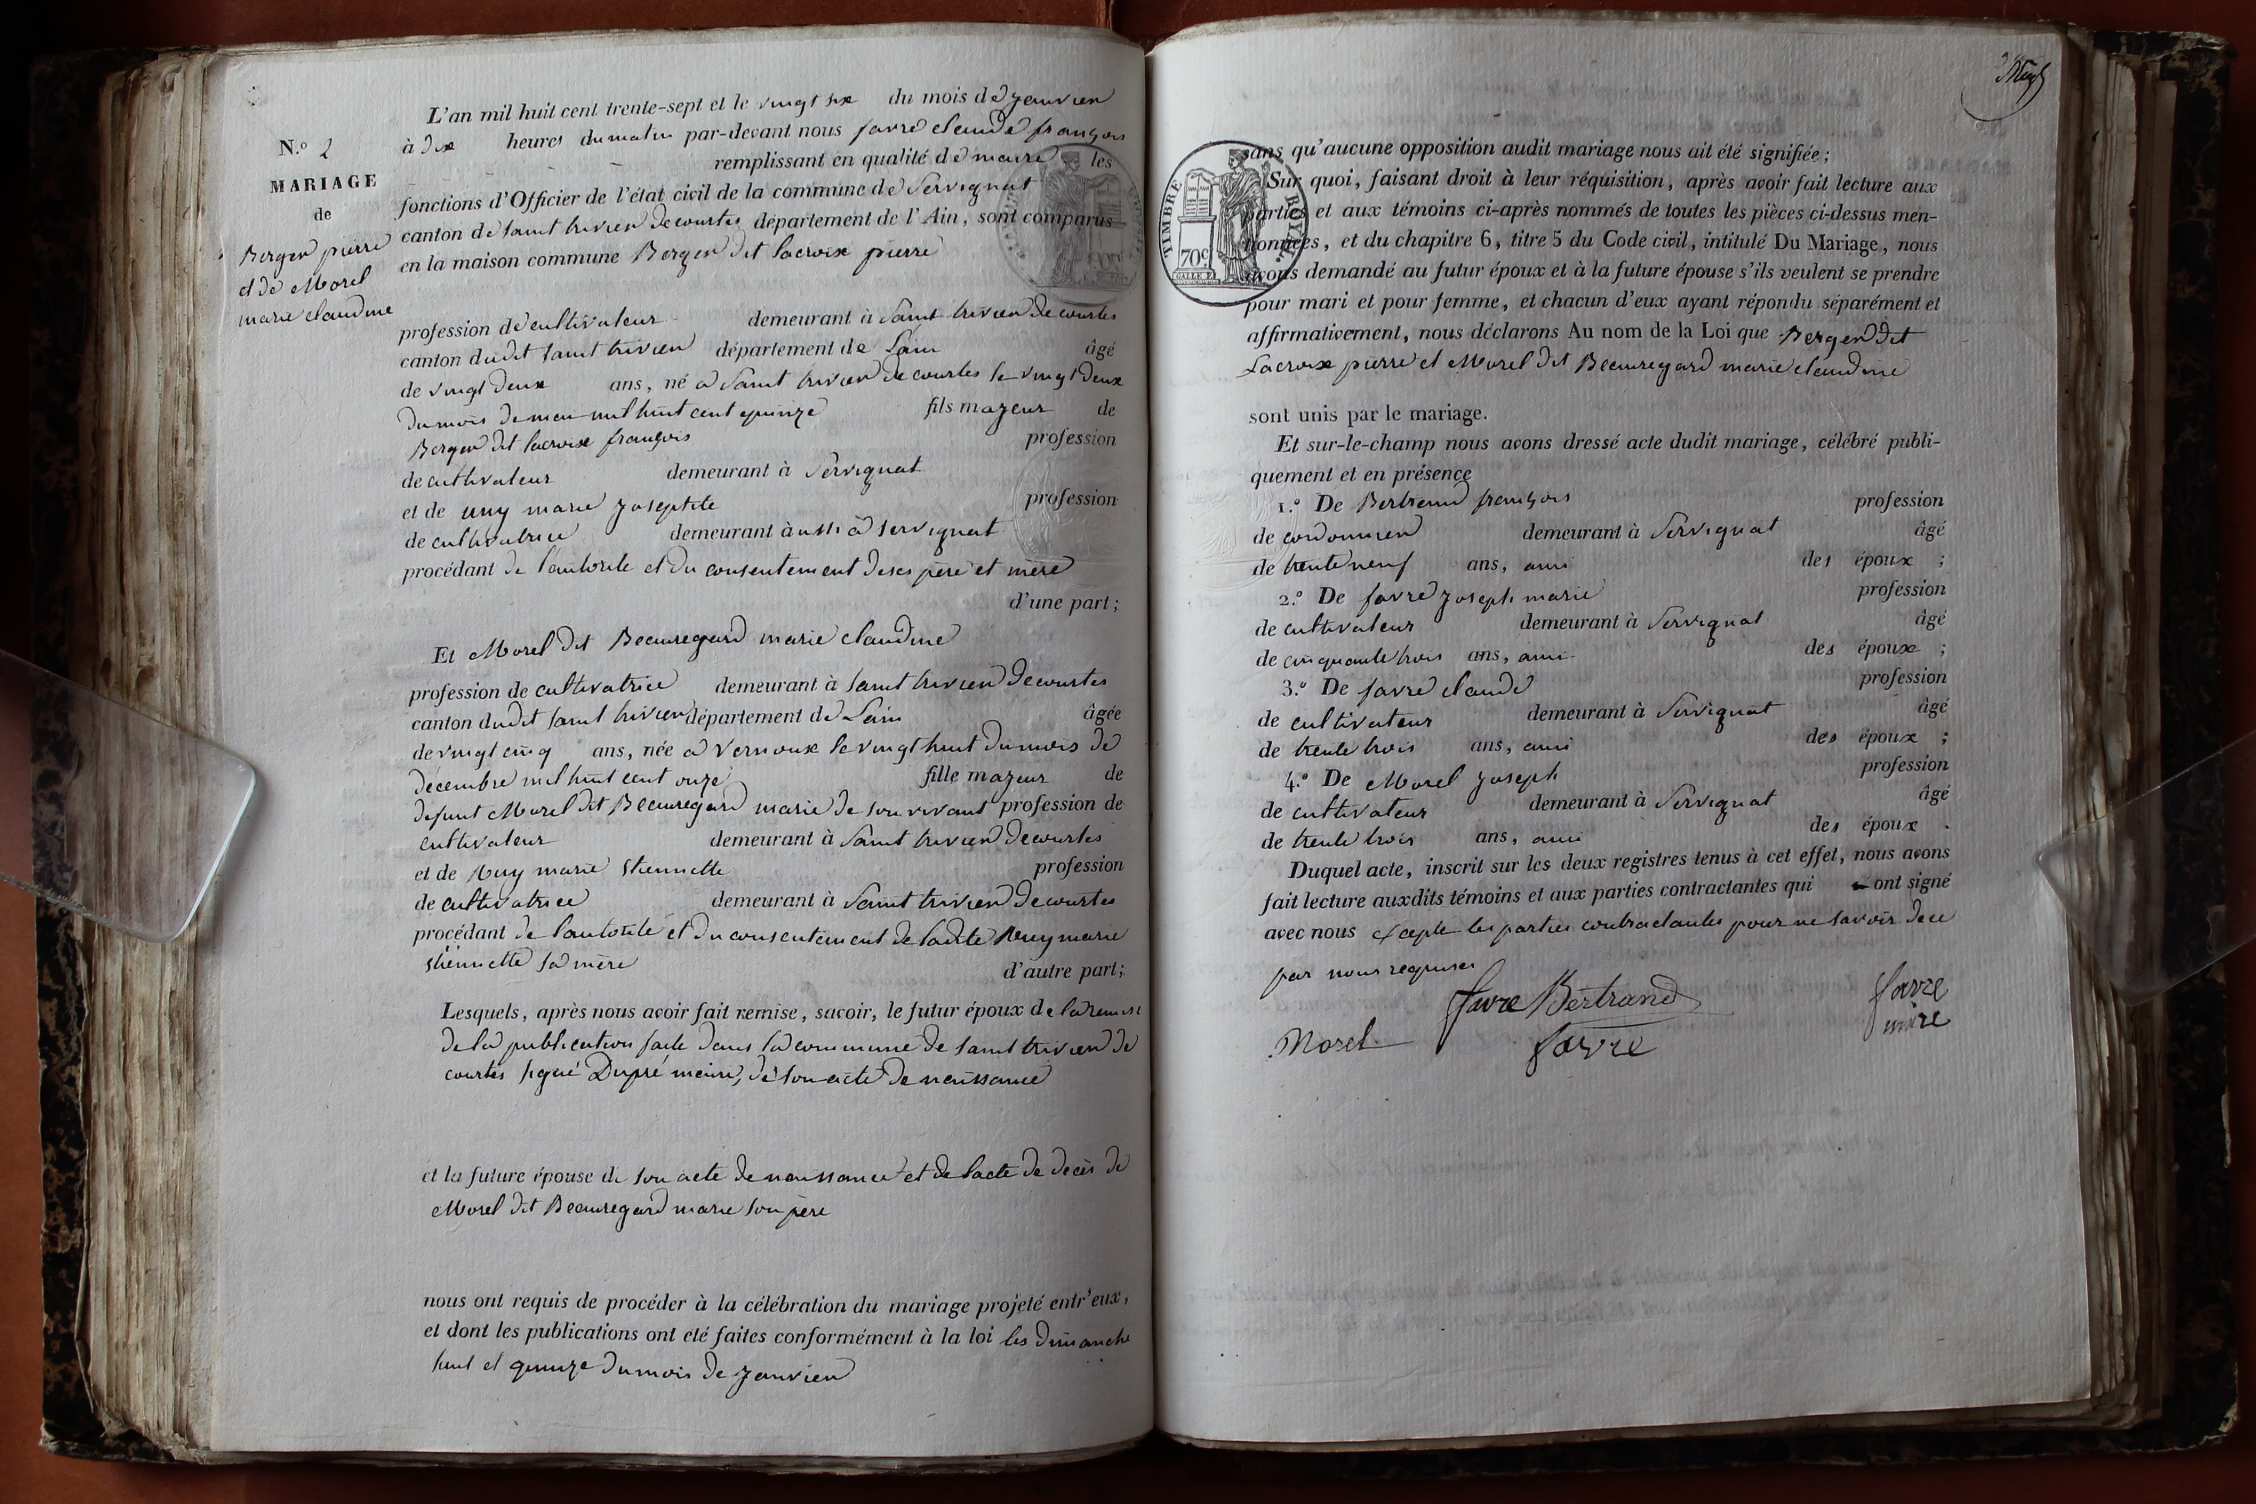 N.º 2
MARIAGE
de
Berger pierre
et de Morel
marie claudine
L'an mil huit cent trente-sept et le vingt six du mois de janvier
à dix heures du matin par-devant nous favre claude françois
remplissant en qualité de maire les
fonctions d'Officier de l'état civil de la commune de Servignat
canton de saint trivier de courtes département de l'Ain, sont comparus
en la maison commune Berger dit lacroix pierre
profession de cultivateur demeurant à saint trivier de courtes
canton dudit saint trivier département de Lain âgé
de vingt deux ans, né a Saint trivier de courtes le vingt deux
du mois de mai mil huit cent quinze fils majeur de
Berger dit lacroix françois profession
de cultivateur demeurant à Servignat
et de uny marie josephte profession
de cultivatrice demeurant à ussi à servignat
procédant de l'autorite et du consentement de ses père et mère
d'une part;
Et Morel dit Beauregard marie claudine
profession de cultivatrice demeurant à saint trivier de courtes
canton dudit saint trivier département de Lain âgée
de vingt cinq ans, née a Vernoux le vingt huit du mois de
décembre mil huit cent onze fille majeur de
défunt Morel dit Beauregard marie de son vivant profession de
cultivateur demeurant à saint trivier de courtes
et de Nuy marie stiennette profession
de cultivatrice demeurant à Saint trivier de courtes
procédant de l'autorité et du consentement de ladite Nuy marie
stiennette sa mère d'autre part;
Lesquels, après nous avoir fait remise, savoir, le futur époux de la remise
de la publication faite dans la commune de saint trivier de
courtes signé Dupré maire, de son acte de naissance
et la future épouse de son acte de naissance et de lacte de decès de
Morel dit Beauregard marie son père
nous ont requis de procéder à la célébration du mariage projeté entr'eux,
et dont les publications ont été faites conformément à la loi les dimanche
huit et quinze du mois de janvier
TIMBRE ROYAL.
70c
sans qu'aucune opposition audit mariage nous ait été signifiée;
Sur quoi, faisant droit à leur réquisition, après avoir fait lecture aux
parties et aux témoins ci-après nommés de toutes les pièces ci-dessus men-
tionnées, et du chapitre 6, titre 5 du Code civil, intitulé Du Mariage, nous
avons demandé au futur époux et à la future épouse s'ils veulent se prendre
pour mari et pour femme, et chacun d'eux ayant répondu séparément et
affirmativement, nous déclarons Au nom de la Loi que Berger dit
Lacroix pierre et Morel dit Beauregard marie claudine
sont unis par le mariage.
Et sur-le-champ nous avons dressé acte dudit mariage, célébré publi-
quement et en présence
1.º De Bertrand françois profession
de cordonnier demeurant à Servignat âgé
de trente neuf ans, ami des époux ;
2.º De favre joseph marie profession
de cultivateur demeurant à Servignat âgé
de cinquante trois ans, ami des époux ;
3.º De favre claude profession
de cultivateur demeurant à Servignat âgé
de trente trois ans, ami des époux ;
4.º De Morel joseph profession
de cultivateur demeurant à Servignat âgé
de trente trois ans, ami des époux .
Duquel acte, inscrit sur les deux registres tenus à cet effet, nous avons
fait lecture auxdits témoins et aux parties contractantes qui ont signé
avec nous excepte les parties contractantes pour ne savoir de ce
par nous requises
favre Bertrand favre
maire
Morel favre